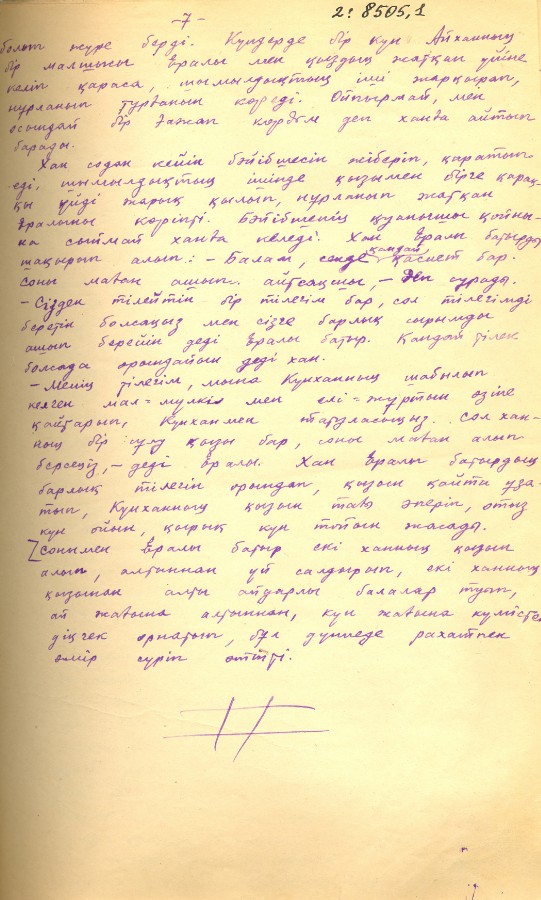 -7-
2:8505,1
болып жүре берді. Күндерде бір күн Айханның
бір малшысы Ералы мен қыздың жатқан үйіне
келіп қараса, шымылдықтың іші жарқырап,
нұрланып тұрғанын көреді. Ойпырмай, мен
осындай бір ғажап көрдім деп ханға айтып
барады.
Хан содан кейін бәйбішесін жіберіп, қаратып
еді, шымылдықтың ішінде қызымен бірге қараң-
қы үйді жарық қылып, нұрланып жатқан
Ералыны көріпті. Бәйбішенің қуанышы қойны-
на сыймай ханға келеді. Хан Ералы батырды
шақырып алып: - Балам, сенде қандай қасиет бар.
Соны маған ашып айтсақшы, - деп сұрады.
- Сізден тілейтін бір тілегім бар, сол тілегімді
беретін болсаңыз мен сізге барлық сырымды
ашып берейін деді Ералы батыр. Қандай тілек
болсада орындайын деді хан.
- Менің тілегім, мына Күнханның шабылып
келген мал-мүлкі мен елі-жұртын өзіне
қайтарып, Күнханмен татуласыңыз. Сол хан-
ның бір сұлу қызы бар, соны маған алып
берсеңіз, - деді Ералы. Хан Ералы батырдың
барлық тілегін орындап, қызын қайта ұза-
тып, Күнханның қызын тағы әперіп, отыз
күн ойын, қырық күн тойын жасады.
Сонымен Ералы батыр екі ханның қызын
алып, алтыннан үй салдырып, екі ханның
қызынан алты айдарлы балалар туып,
ай жағына алтыннан, күн жағына күмістен
діңгек орнатып, бұл дүниеде рахатпен
өмір сүріп өтіпті.